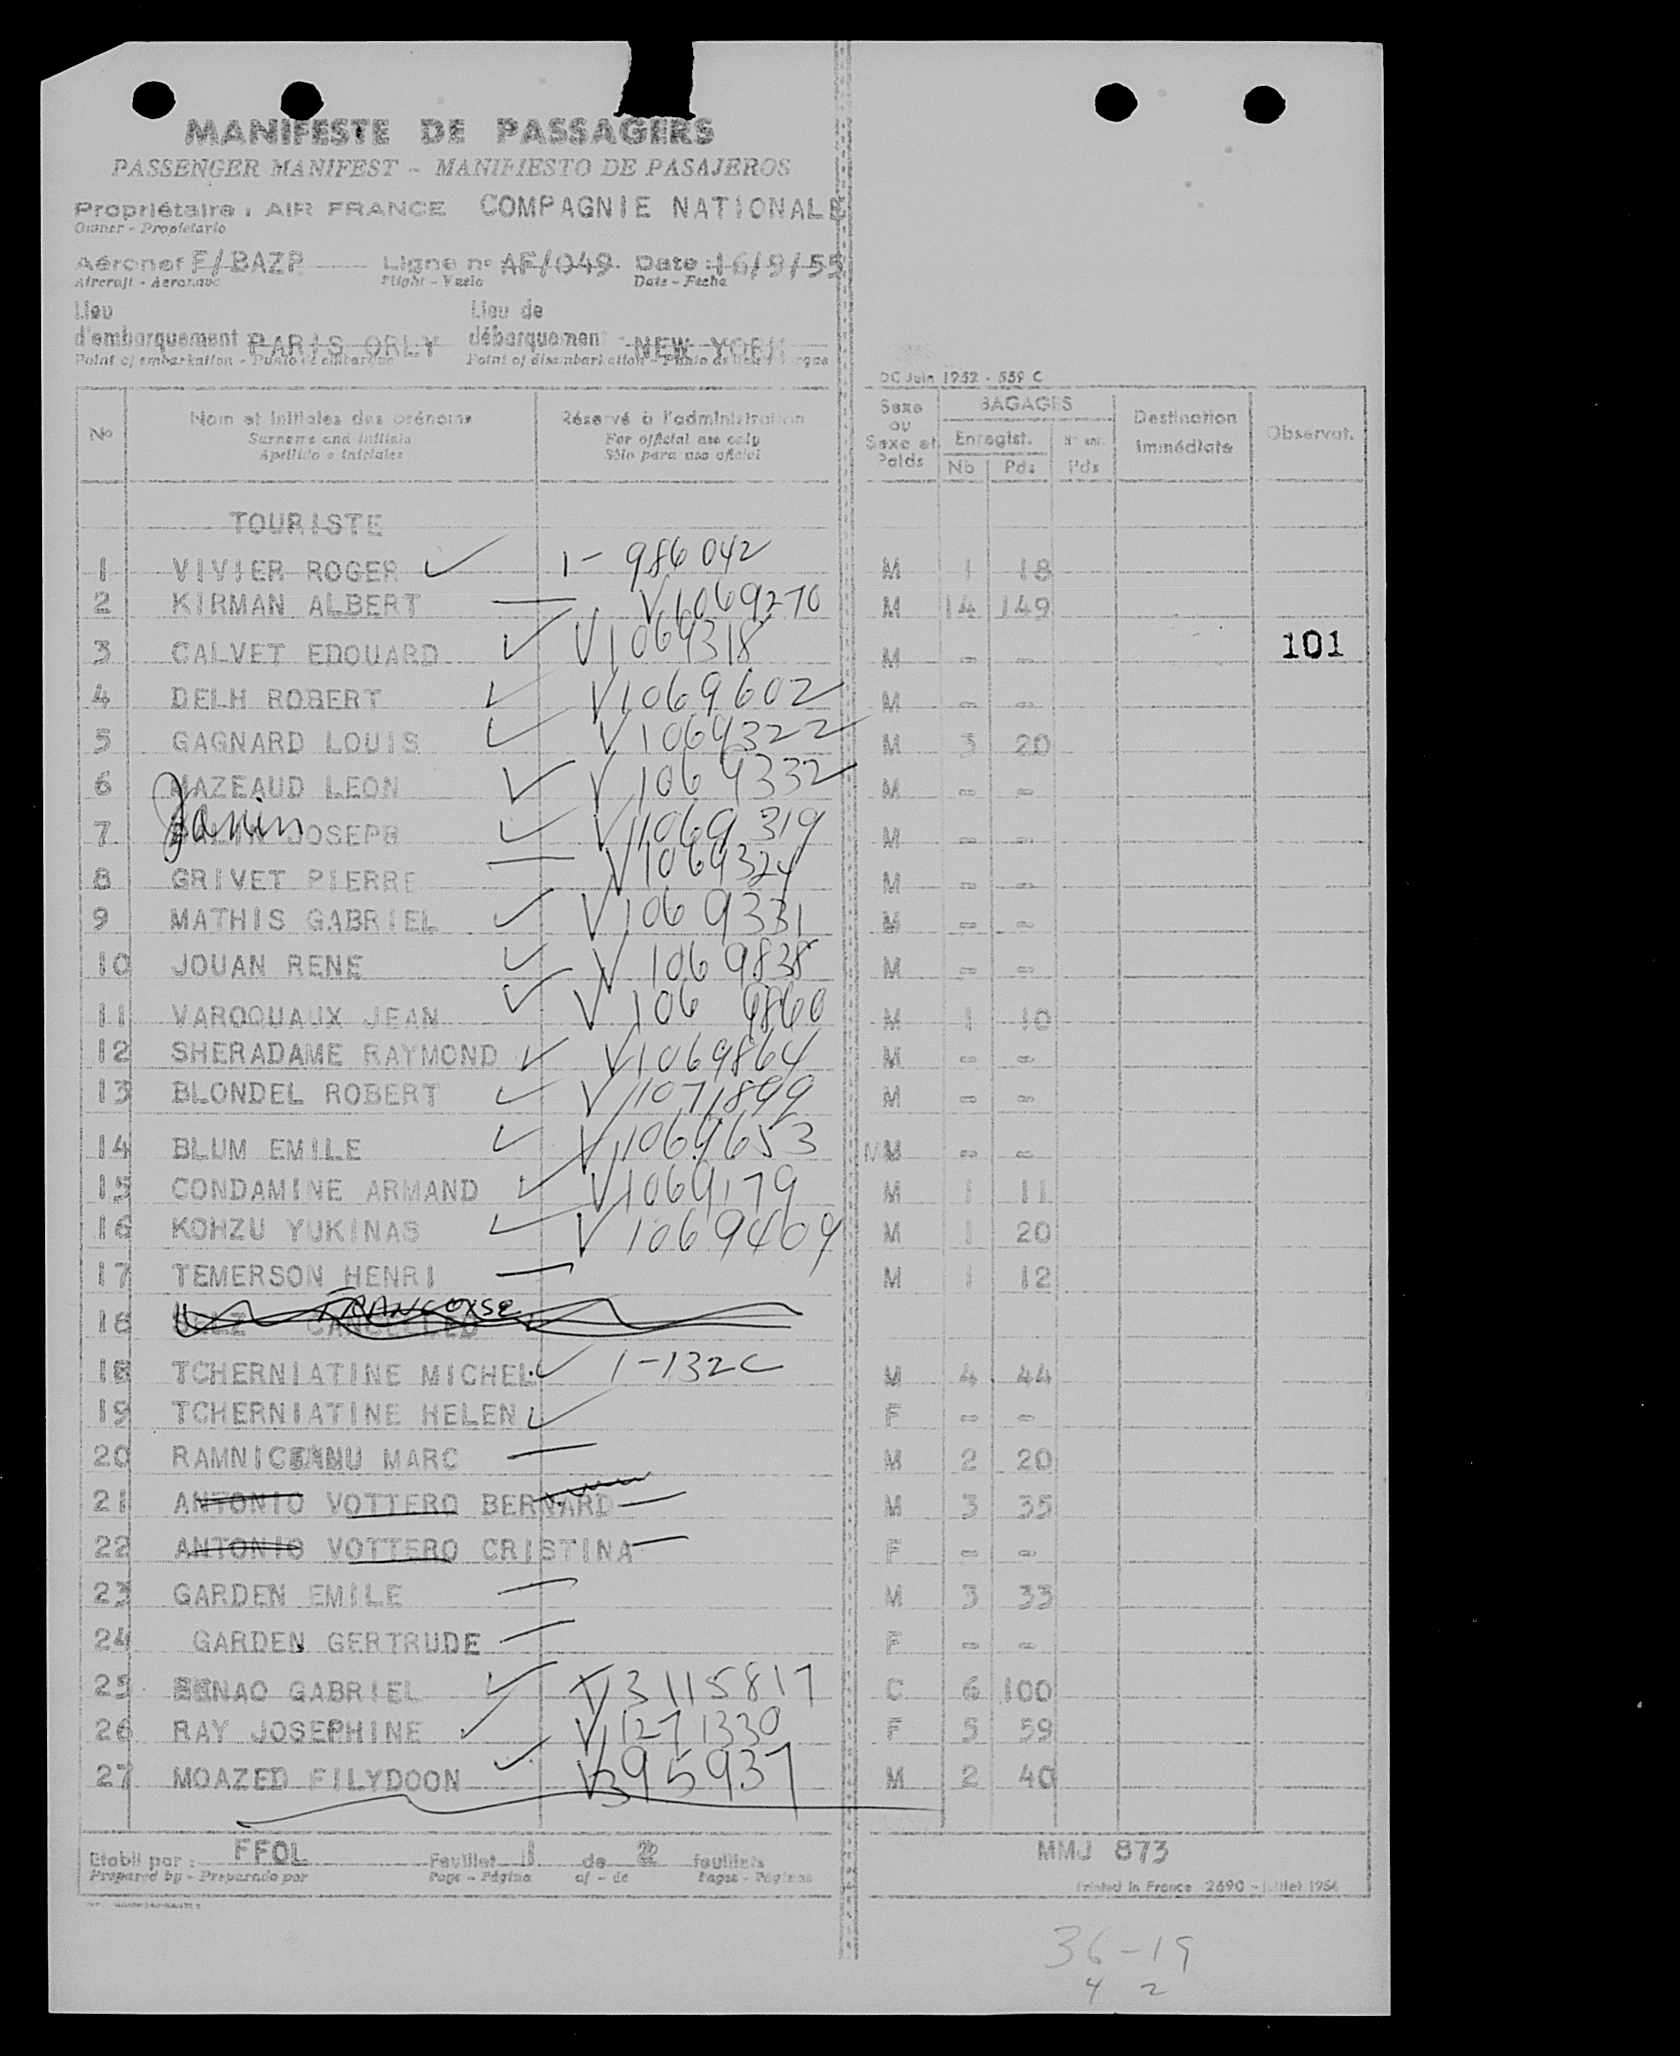 MANIFESTE DE PASSAGERS
PASSENGER MANIFEST - MANIFIESTO DE PASAJEROS
Propriétaire : AIR FRANCE COMPAGNIE NATIONALE
Owner - Propietario
Aéronef F/BAZP Ligne nº AF/049 Date : 16/9/55
Aircraft - Aeronave Flight - Vuelo Date - Fecha
Lieu d'embarquement PARIS ORLY Lieu de débarquement NEW YORK
Point of embarkation - Punto de embarque Point of disembarkation - Punto de
DC Juin 1952 - 559 C
Nº Nom et initiales des prénoms Réservé à l'administration Sexe ou Sexe et Poids BAGAGES Destination immédiate Observat.
Surname and initials For official use only Enregist. Nº enr.
Apellido e iniciales Sólo para uso oficial Nb Pds Pds
TOURISTE
1 VIVIER ROGER 1- 986042 M 1 18
2 KIRMAN ALBERT V 1069270 M 14 149
3 CALVET EDOUARD V 1069318 M - - 101
4 DELH ROBERT V 1069602 M - -
5 GAGNARD LOUIS V 1069322 M 3 20
6 MAZEAUD LEON V 1069332 M - -
7 Janin JOSEPH V 1069319 M - -
8 GRIVET PIERRE V 1069324 M - -
9 MATHIS GABRIEL V 1069331 M - -
10 JOUAN RENE V 1069838 M - -
11 VAROQUAUX JEAN V 1069860 M 1 10
12 SHERADAME RAYMOND V 1069864 M - -
13 BLONDEL ROBERT V 1071899 M - -
14 BLUM EMILE V 1069653 M - -
15 CONDAMINE ARMAND V 1069179 M 1 11
16 KOHZU YUKINAS V 1069409 M 1 20
17 TEMERSON HENRI M 1 12
18 FRANCOISE CANCELLED
18 TCHERNIATINE MICHEL 1-132C M 4 44
19 TCHERNIATINE HELEN F - -
20 RAMNICEANU MARC M 2 20
21 ANTONIO VOTTERO BERNARD M 3 35
22 ANTONIO VOTTERO CRISTINA F - -
23 GARDEN EMILE M 3 33
24 GARDEN GERTRUDE F - -
25 GABRIEL V 3115817 C 6 100
26 RAY JOSEPHINE V 1271330 F 5 59
27 MOAZED FILYDOON V 395937 M 2 40
Etabli par : FFOL Feuillet 1 de 2 feuillets MMJ 873
Prepared by - Preparado por Page - Página of - de Pages - Páginas
Printed in France 2690 - Juillet 1954
36-19
4 2